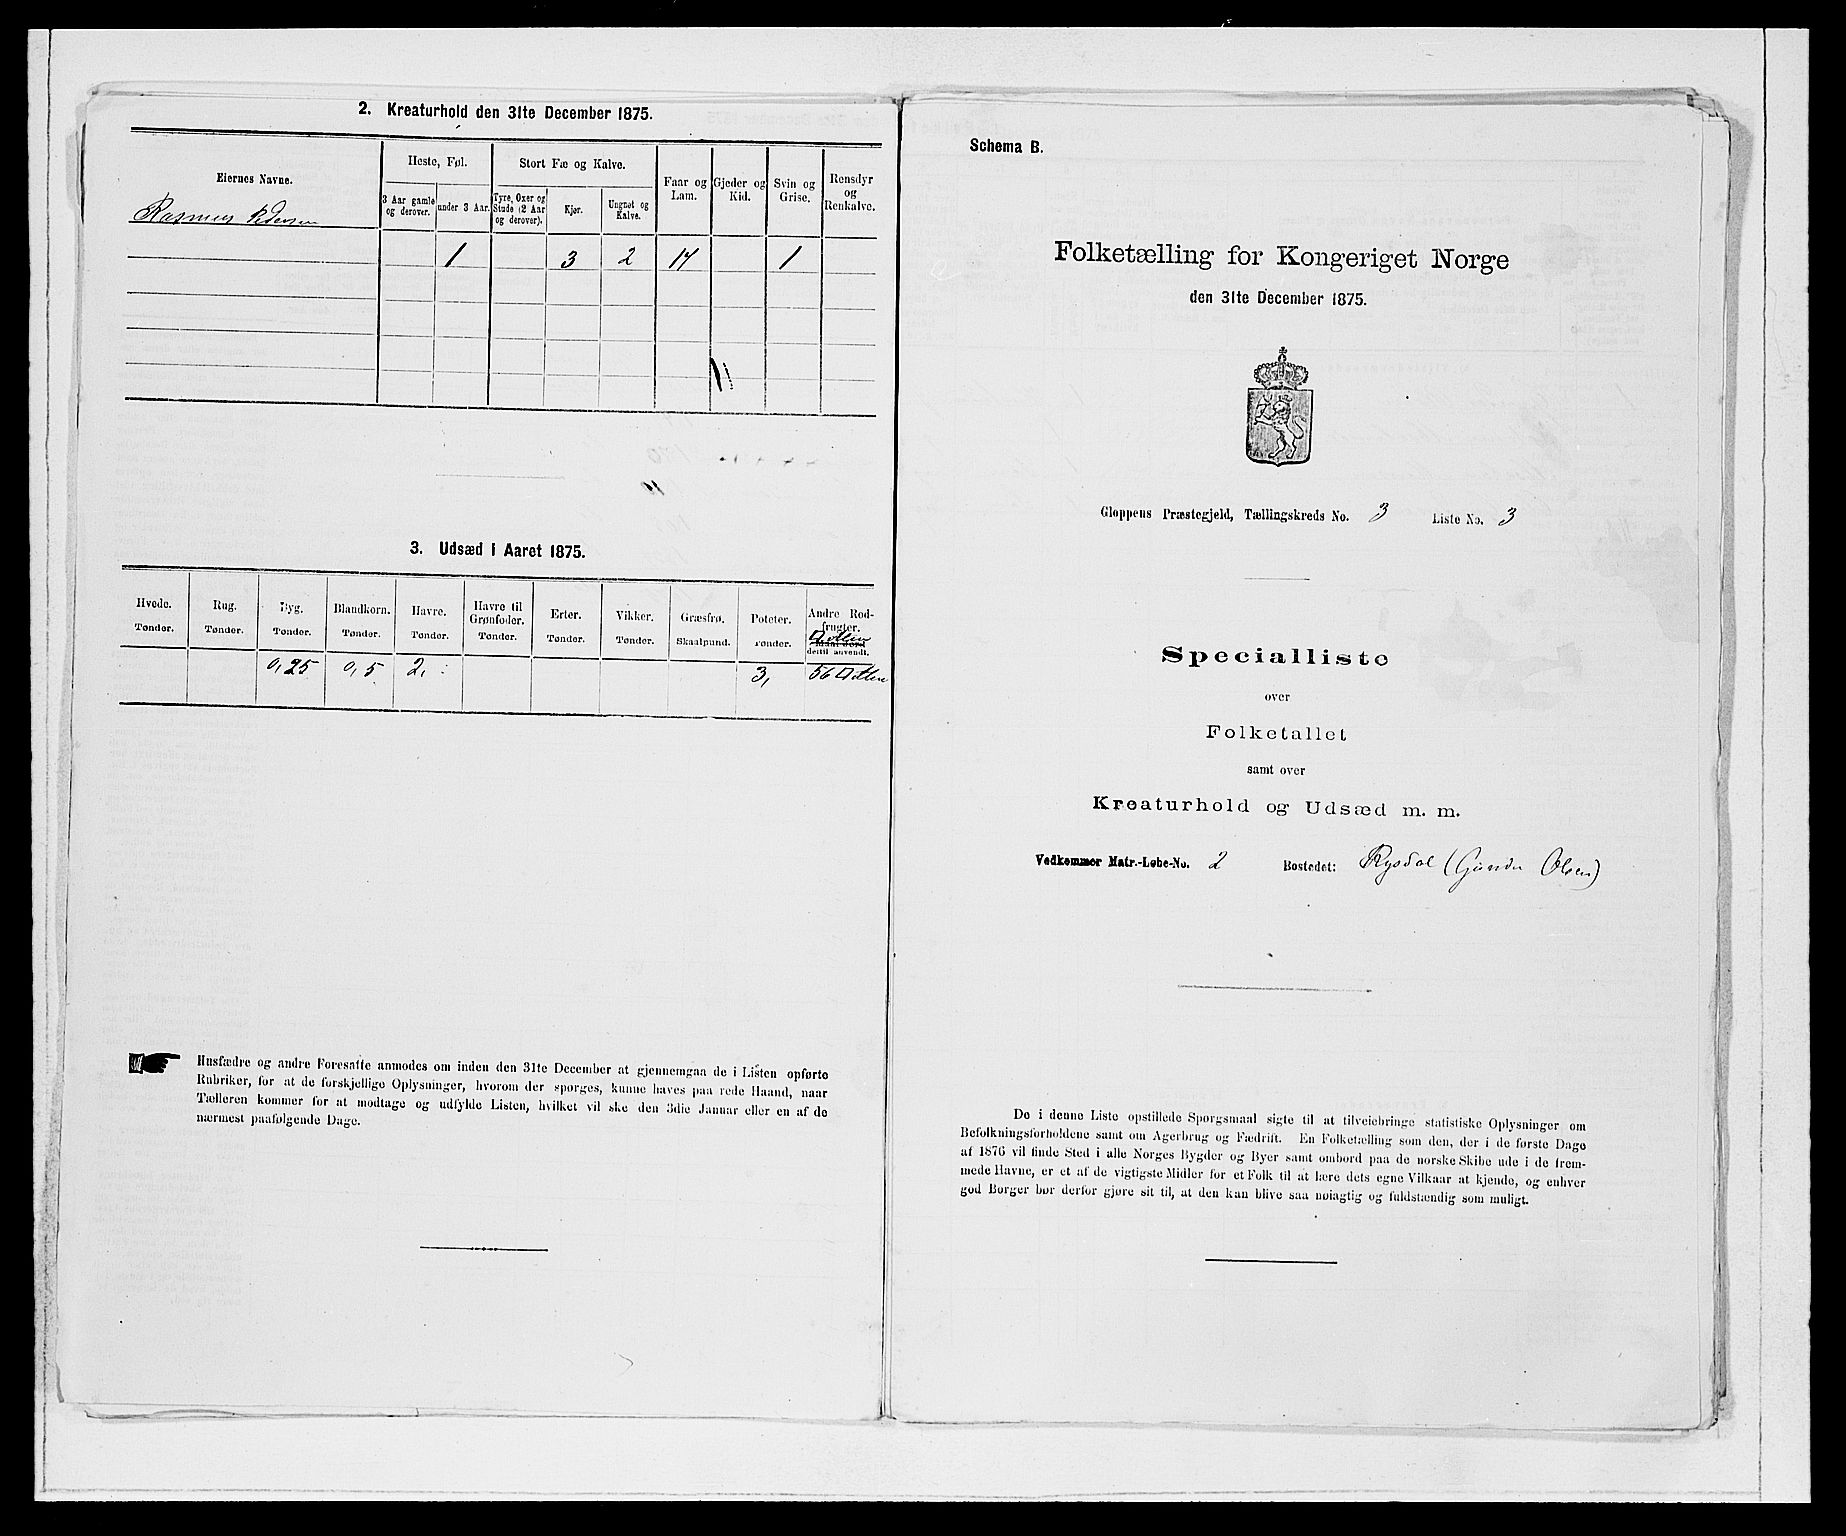 2. Kreaturhold den 31te December 1875.
Eiernes Navne.
Heste, Føl.
Stort Fæ og Kalve.
Faar og Lam.
Gjeder og Kid.
Svin og Grise.
Rensdyr og Renkalve.
3 Aar gamle og derover.
under 3 Aar.
Tyre, Oxer og Stude (2 Aar og derover).
Kjør.
Ungnøt og Kalve.
Rasmus Pedersen
1 3 2 17 1
3. Udsæd i Aaret 1875.
Hvede. Rug. Byg. Blandkorn. Havre. Havre til Grønfoder. Erter. Vikker. Græsfrø. Poteter. Andre Rodfrugter.
Tønder. Tønder. Tønder. Tønder. Tønder. Tønder. Tønder. Tønder. Skaalpund. Tønder.
dertil anvendt.
0,25 0,5 2, 3, 56
Husfædre og andre Foresatte anmodes om inden den 31te December at gjennemgaa de i Listen opførte
Rubriker, for at de forskjellige Oplysninger, hvorom der spørges, kunne haves paa rede Haand, naar
Tælleren kommer for at modtage og udfylde Listen, hvilket vil ske den 3die Januar eller en af de
nærmest paafølgende Dage.
Schema B.
Folketælling for Kongeriget Norge
den 31te December 1875.
Gloppens Præstegjeld, Tællingskreds No. 3 Liste No. 3
Specialliste
over
Folketallet
samt over
Kreaturhold og Udsæd m. m.
Vedkommer Matr.-Løbe-No. 2 Bostedet: Rysdal (Gunder Olsen)
De i denne Liste opstillede Spørgsmaal sigte til at tilveiebringe statistiske Oplysninger om
Befolkningsforholdene samt om Agerbrug og Fædrift. En Folketælling som den, der i de første Dage
af 1876 vil finde Sted i alle Norges Bygder og Byer samt ombord paa de norske Skibe ude i de frem-
mede Havne, er et af de vigtigste Midler for et Folk til at lære dets egne Vilkaar at kjende, og enhver
god Borger bør derfor gjøre sit til, at den kan blive saa nøiagtig og fuldstændig som muligt.